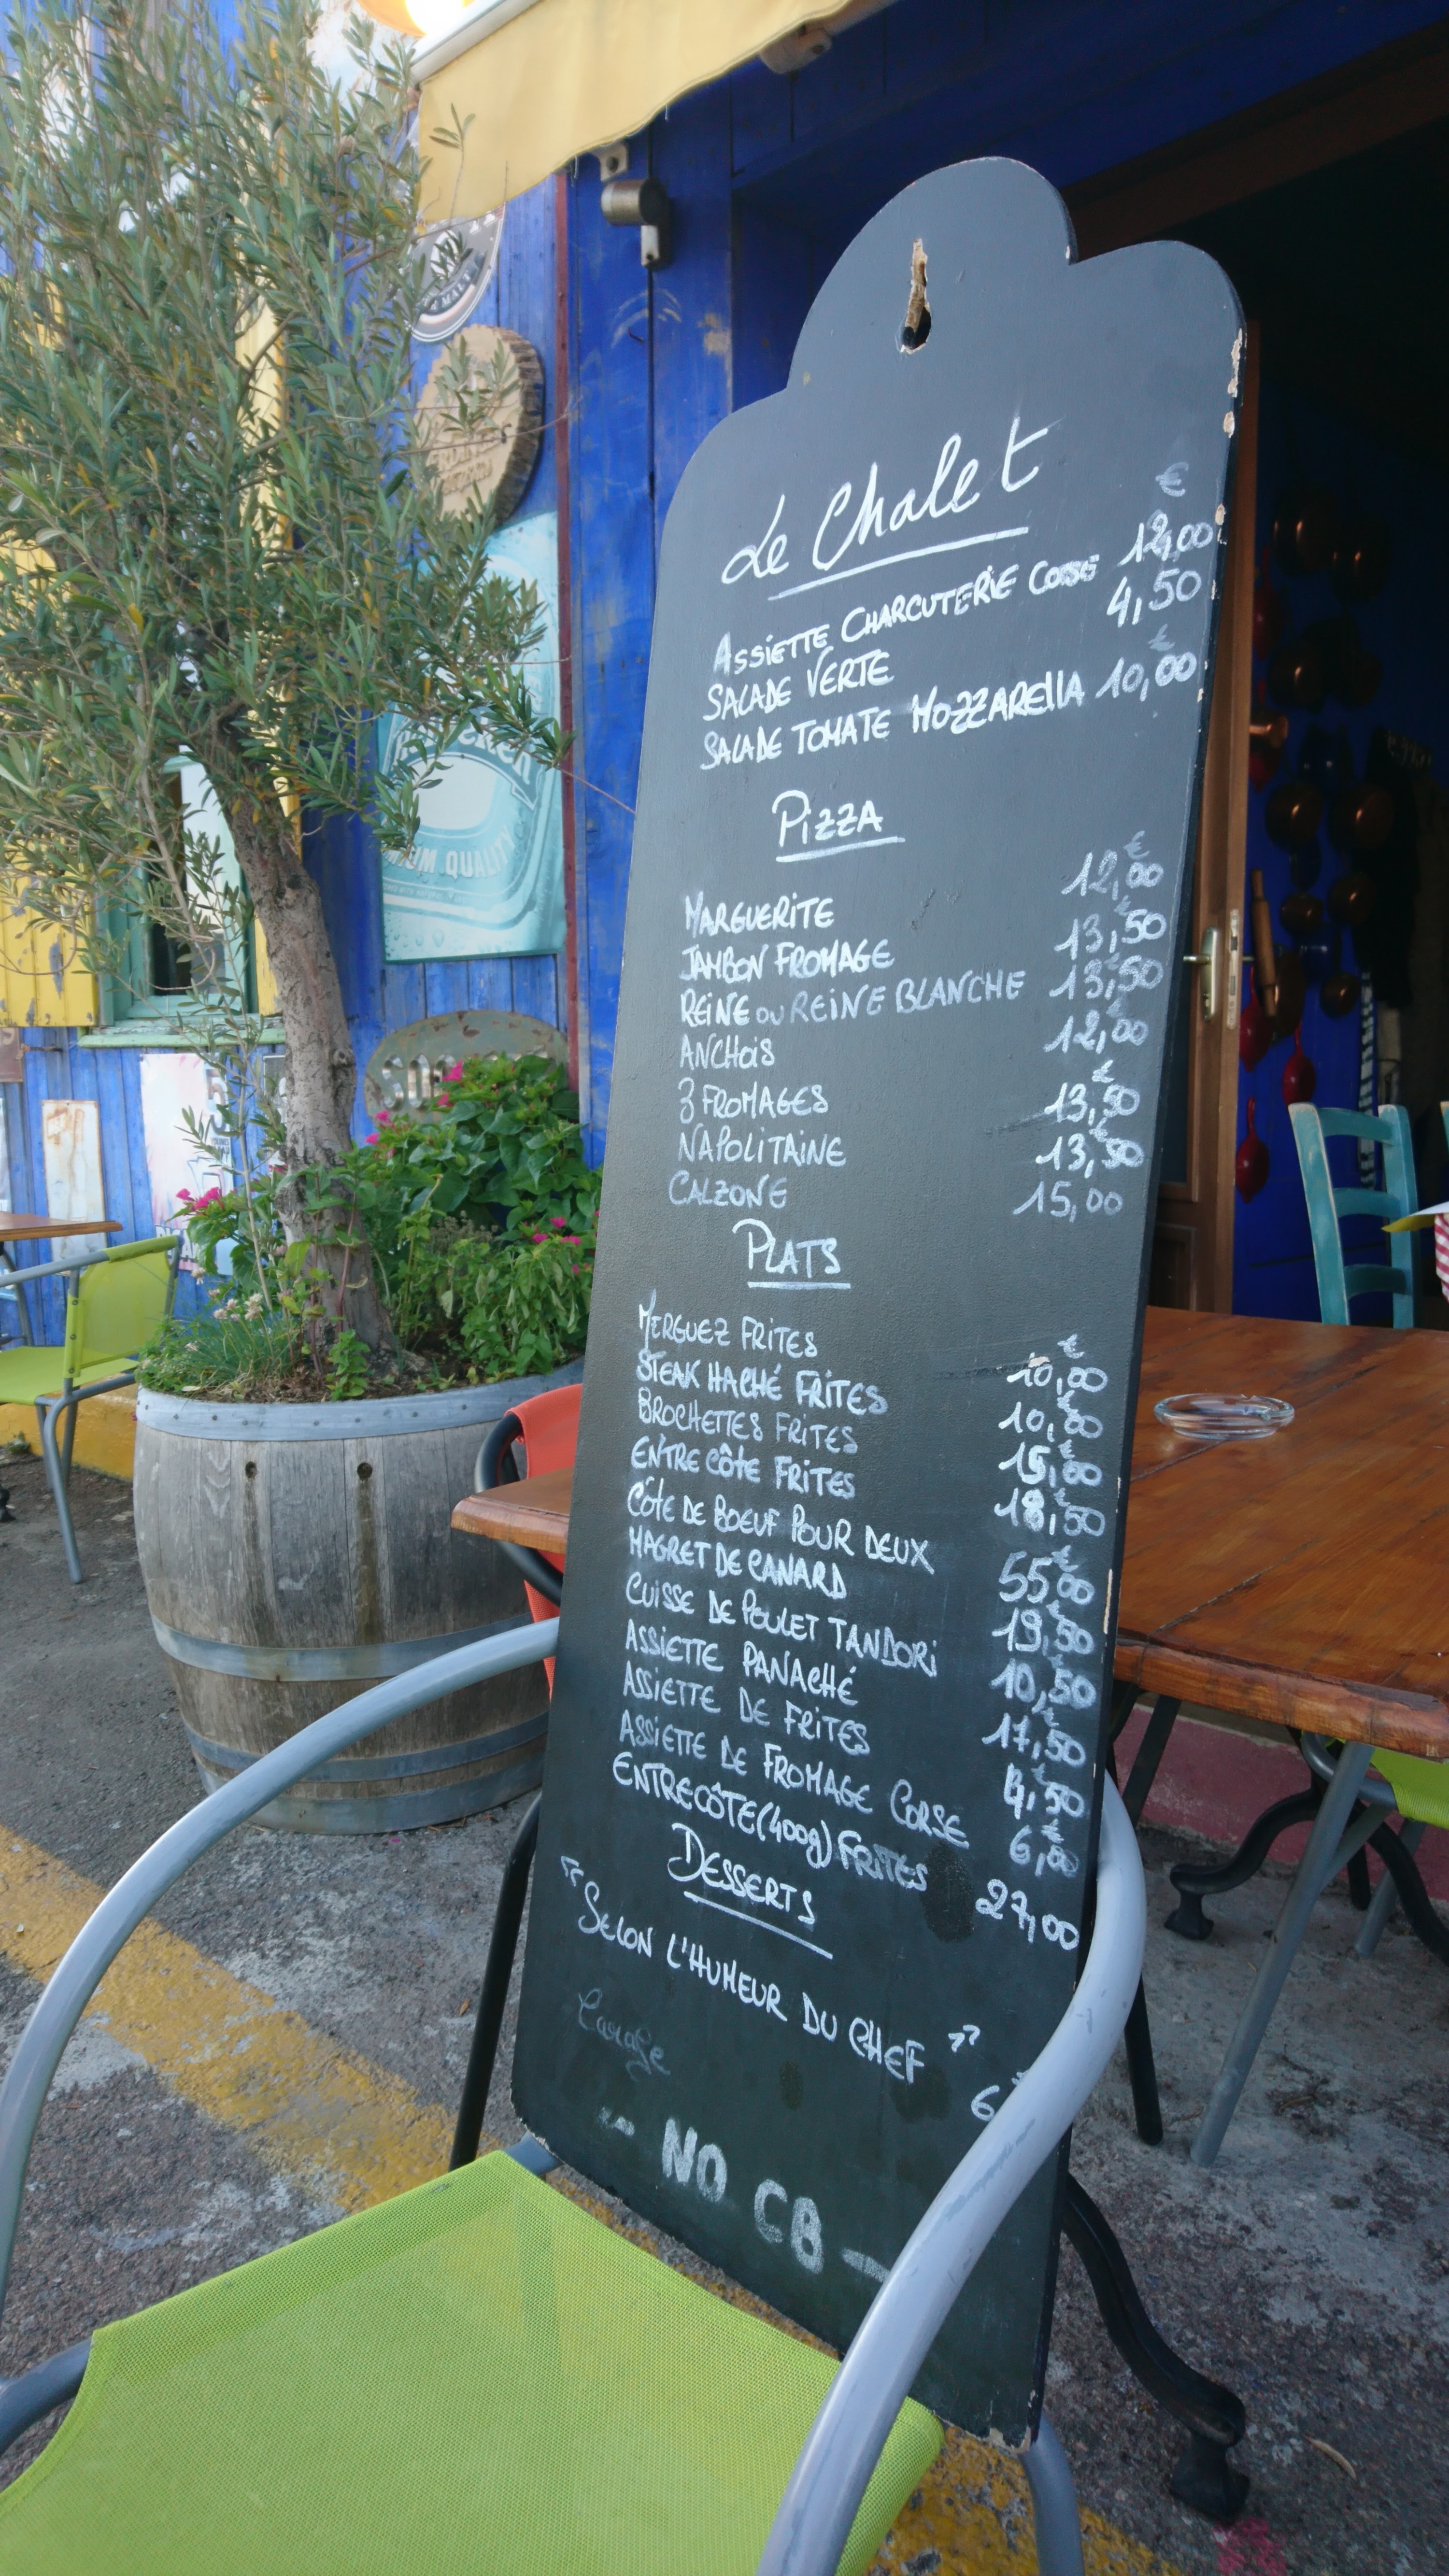 Le Chalet
€
ASSIETTE CHARCUTERIE CORSE 12,00
SALADE VERTE 4,50
€
SALADE TOMATE MOZZARELLA 10,00
PIZZA
MARGUERITE 12,00 €
JAMBON FROMAGE 13,50
REINE OU REINE BLANCHE 13,50
ANCHOIS 12,00 €
3 FROMAGES 13,50 €
NAPOLITAINE 13,50 €
CALZONE 15,00
PLATS
MERGUEZ FRITES 10,00 €
STEAK HACHÉ FRITES 10,00 €
BROCHETTES FRITES 15,00 €
ENTRE CÔTE FRITES 18,50 €
CÔTE DE BOEUF POUR DEUX 55,00 €
MAGRET DE CANARD 19,50 €
CUISSE DE POULET TANDORI 10,50 €
ASSIETTE PANACHÉ 17,50 €
ASSIETTE DE FRITES 4,50 €
ASSIETTE DE FROMAGE CORSE 6,00 €
ENTRECÔTE (400g) FRITES 27,00
DESSERTS
"SELON L'HUMEUR DU CHEF"
6
- NO CB -
QUALITY